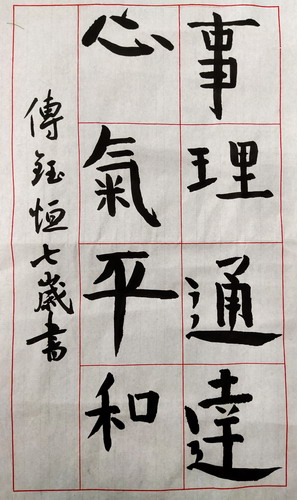 事理通達
心氣平和
傅鈺恒七歲書